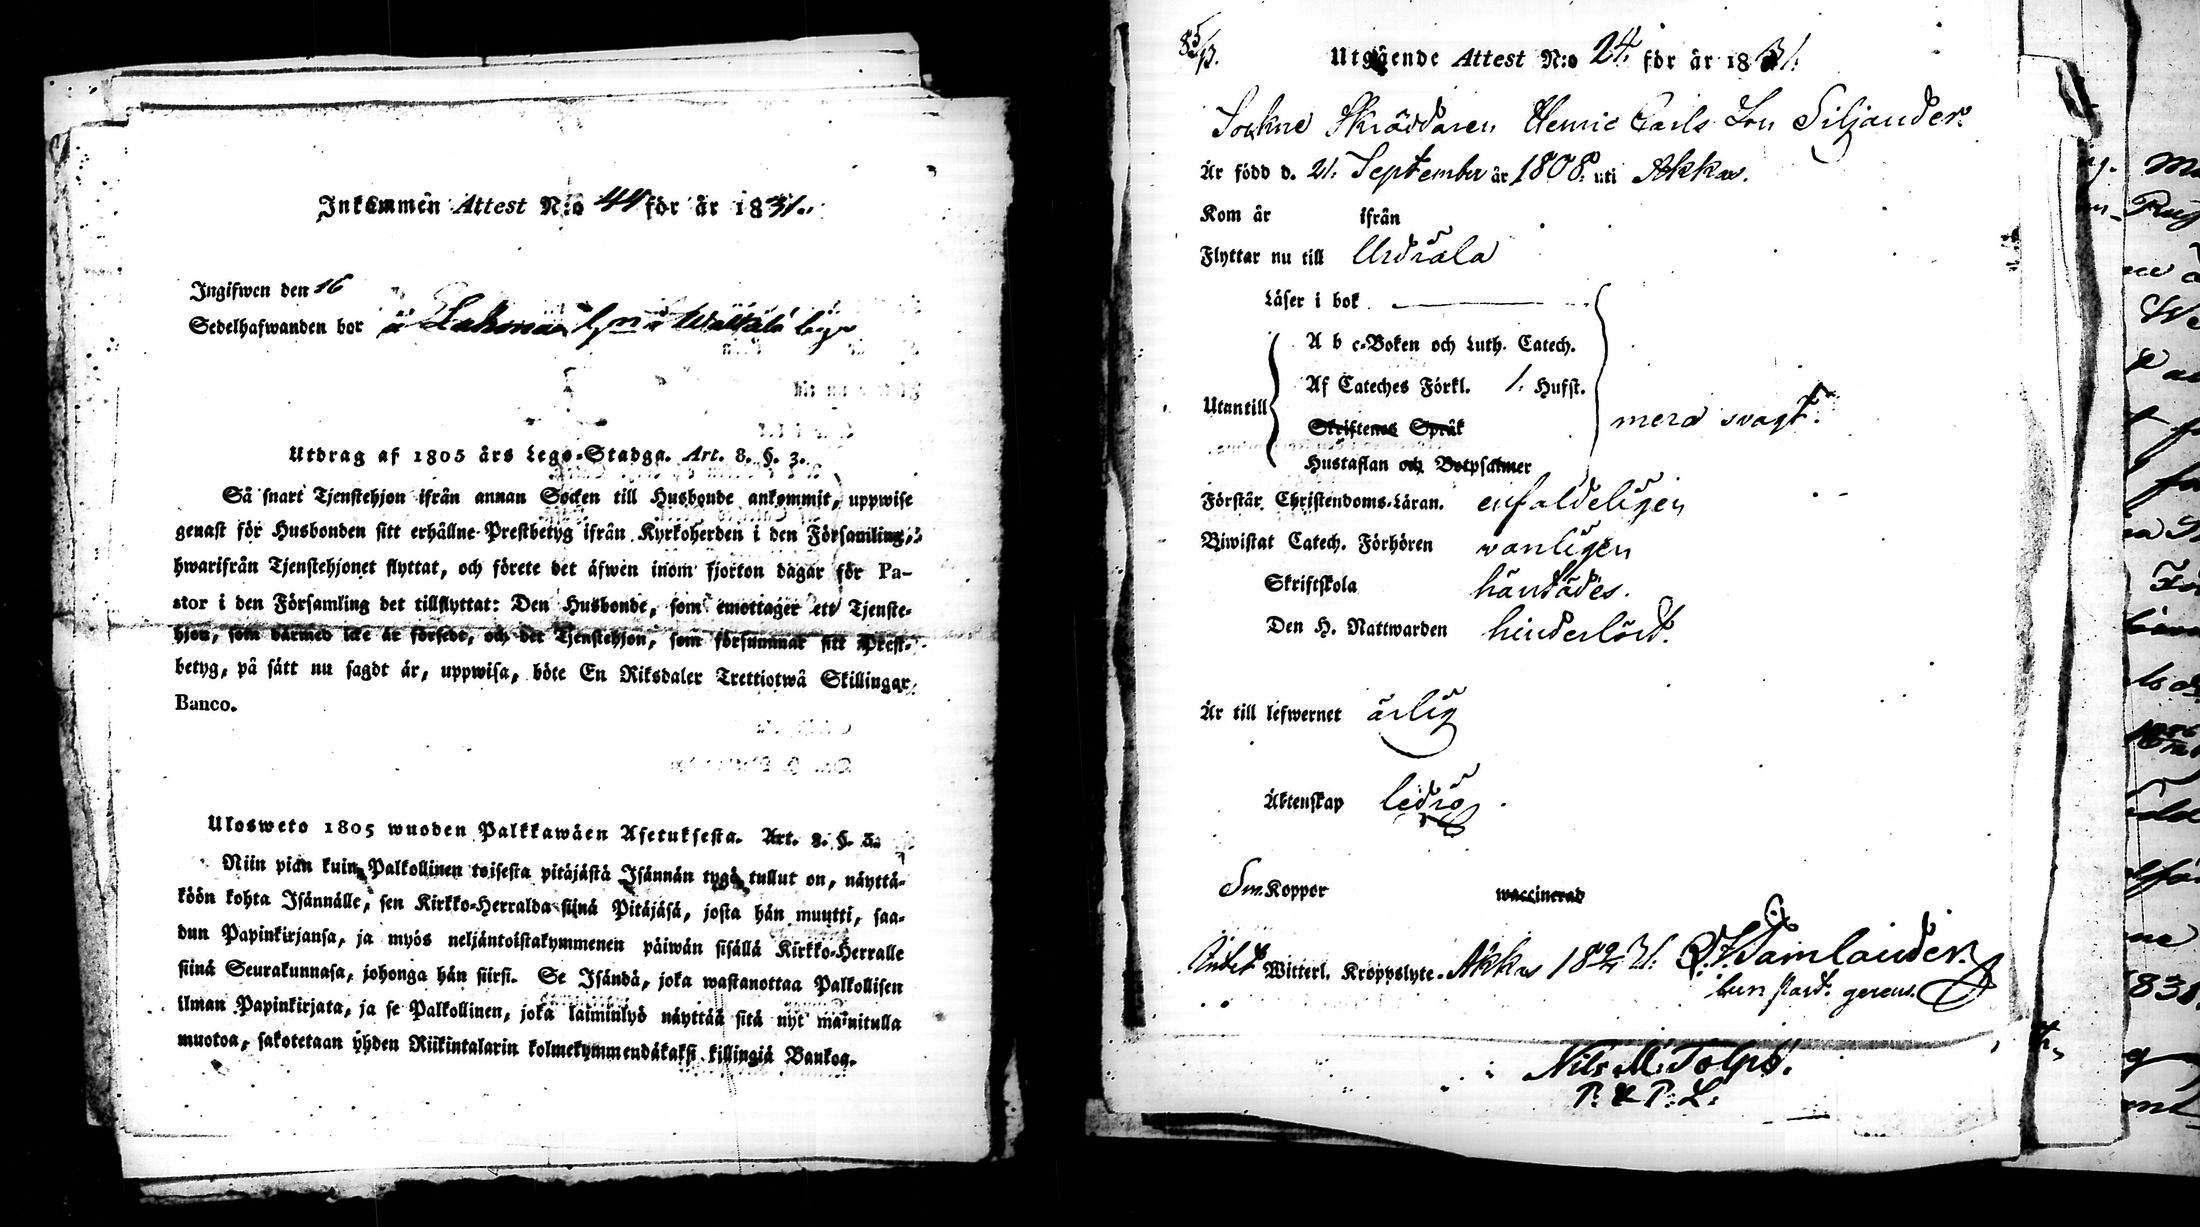 Inkommen Attest N:o 44 för år 1831.
Ingifwen den 16
Sedelhafwanden bor
Utdrag af 1805 års Lego-Stadga. Art. 8. §. 3.
Så snart Tjenstehjon ifrån annan Socken till Husbonde ankommit, uppwise
genast för Husbonden sitt erhållne Prestbetyg ifrån Kyrkoherden i den Församling,
hwarifrån Tjenstehjonet flyttat, och förete det äfwen inom fjorton dagar för Pa-
stor i den Församling det tillflyttat: Den Husbonde, som emottager ett Tjenste-
hjon, som därmed icke är försedt, och det Tjenstehjon, som försummar sitt Prest-
betyg, på sätt nu sagdt är, uppwisa, böte En Riksdaler Trettiotwå Skillingar
Banco.
Ulosweto 1805 wuoden Palkkawäen Asetuksesta. Art. 8. §. 3.
Niin pian kuin Palkollinen toisesta pitäjästä Isännän tygö tullut on, näyttä-
köön kohta Isännälle, sen Kirkko-Herralda siinä Pitäjäsä, josta hän muutti, saa-
dun Papinkirjansa, ja myös neljäntoistakymmenen päiwän sisällä Kirkko-Herralle
siinä Seurakunnasa, johonga hän siirsi. Se Isändä, joka wastanottaa Palkollisen
ilman Papinkirjata, ja se Palkollinen, joka laiminlyö näyttää sitä nyt mainitulla
muotoa, sakotetaan yhden Riikintalarin kolmekymmendäkaksi killingiä Bankoa.
Utgående Attest N:o 24. för år 1831.
Sockne Skräddaren Henric Carls Son Siljander.
Är född d. 21. September år 1808. uti Akkas.
Kom år ifrån
Flyttar nu till Urdiala
Läser i bok
A b c-Boken och Luth. Catech.
Af Cateches Förkl. 1. Hufst.
Utantill
Skriftenes Språk
mera svagt.
Hustaflan och Botpsalmer
Förstår Christendoms-Läran. enfaldeligen
Biwistat Catech. Förhören vanligen
Skriftskola händades.
Den H. Nattwarden hinderlöst.
Är till lefwernet ärlig
Äktenskap ledig
Koppor waccinerad
Witterl. Kroppslyte. Akkas
Nils M. Tolpo.
P. & P. L.